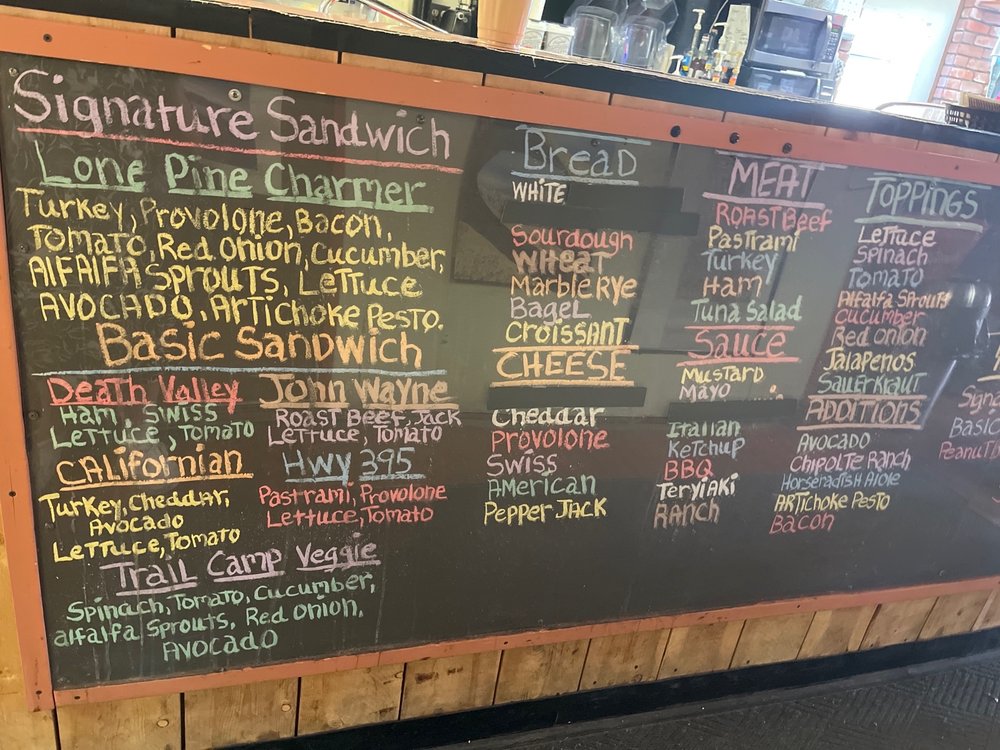 Signature Sandwich
Lone Pine Charmer
Turkey, Provolone, Bacon,
Tomato, Red Onion, Cucumber,
Alfalfa Sprouts, Lettuce
Avocado, Artichoke Pesto.
Basic Sandwich
Death Valley
Ham, Swiss
Lettuce, Tomato
Californian
Turkey, Cheddar,
Avocado
Lettuce, Tomato
John Wayne
Roast Beef, Jack
Lettuce, Tomato
Hwy 395
Pastrami, Provolone
Lettuce, Tomato
Trail Camp Veggie
Spinach, Tomato, Cucumber,
alfalfa Sprouts, Red Onion,
Avocado
Bread
White
Sourdough
Wheat
Marble Rye
Bagel
Croissant
Cheese
Cheddar
Provolone
Swiss
American
Pepper Jack
Meat
Roast Beef
Pastrami
Turkey
Ham
Tuna Salad
Sauce
Mustard
Mayo
Italian
Ketchup
BBQ
Teryiaki
Ranch
Toppings
Lettuce
Spinach
Tomato
Alfalfa Sprouts
Cucumber
Red Onion
Jalapenos
Sauerkraut
Additions
Avocado
Chipolte Ranch
Horseradish Aiole
Artichoke Pesto
Bacon